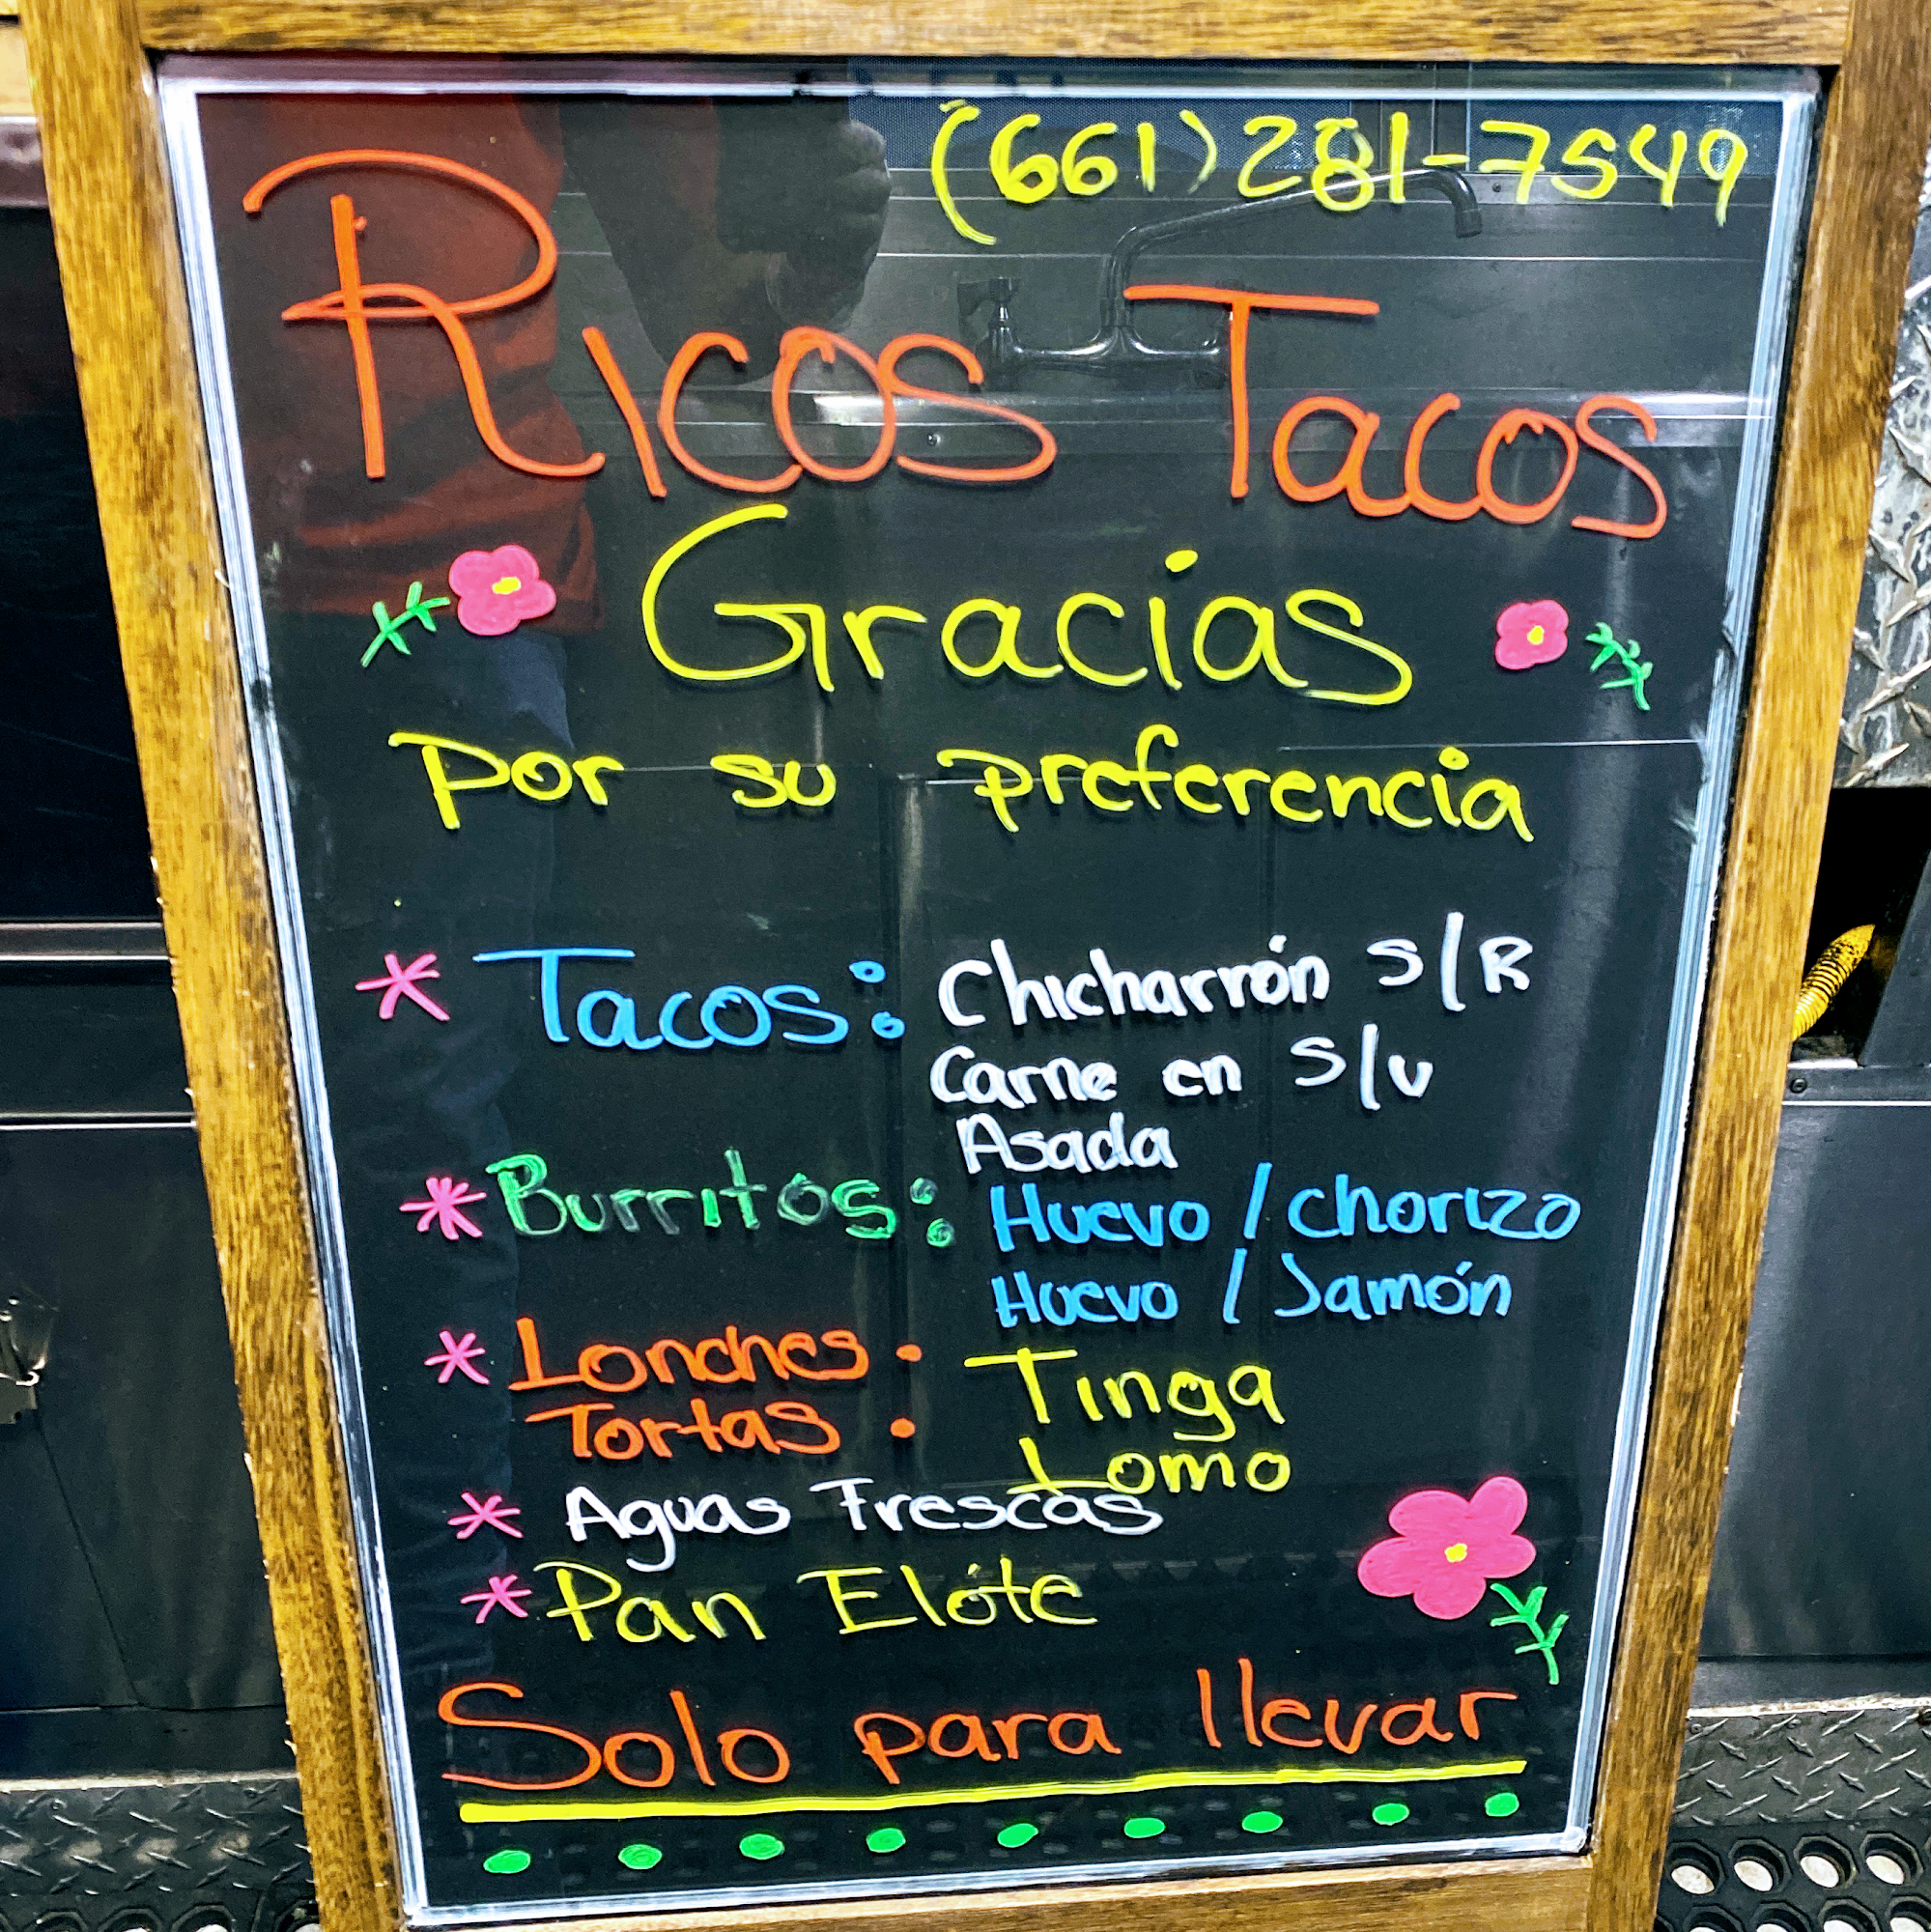 (661) 281-7549
Ricos Tacos
Gracias
por su preferencia
* Tacos: Chicharrón S/R
Carne en S/v
Asada
* Burritos: Huevo / chorizo
Huevo / Jamón
* Lonches : Tinga
Tortas Lomo
* Aguas Frescas
* Pan Elóte
Solo para llevar